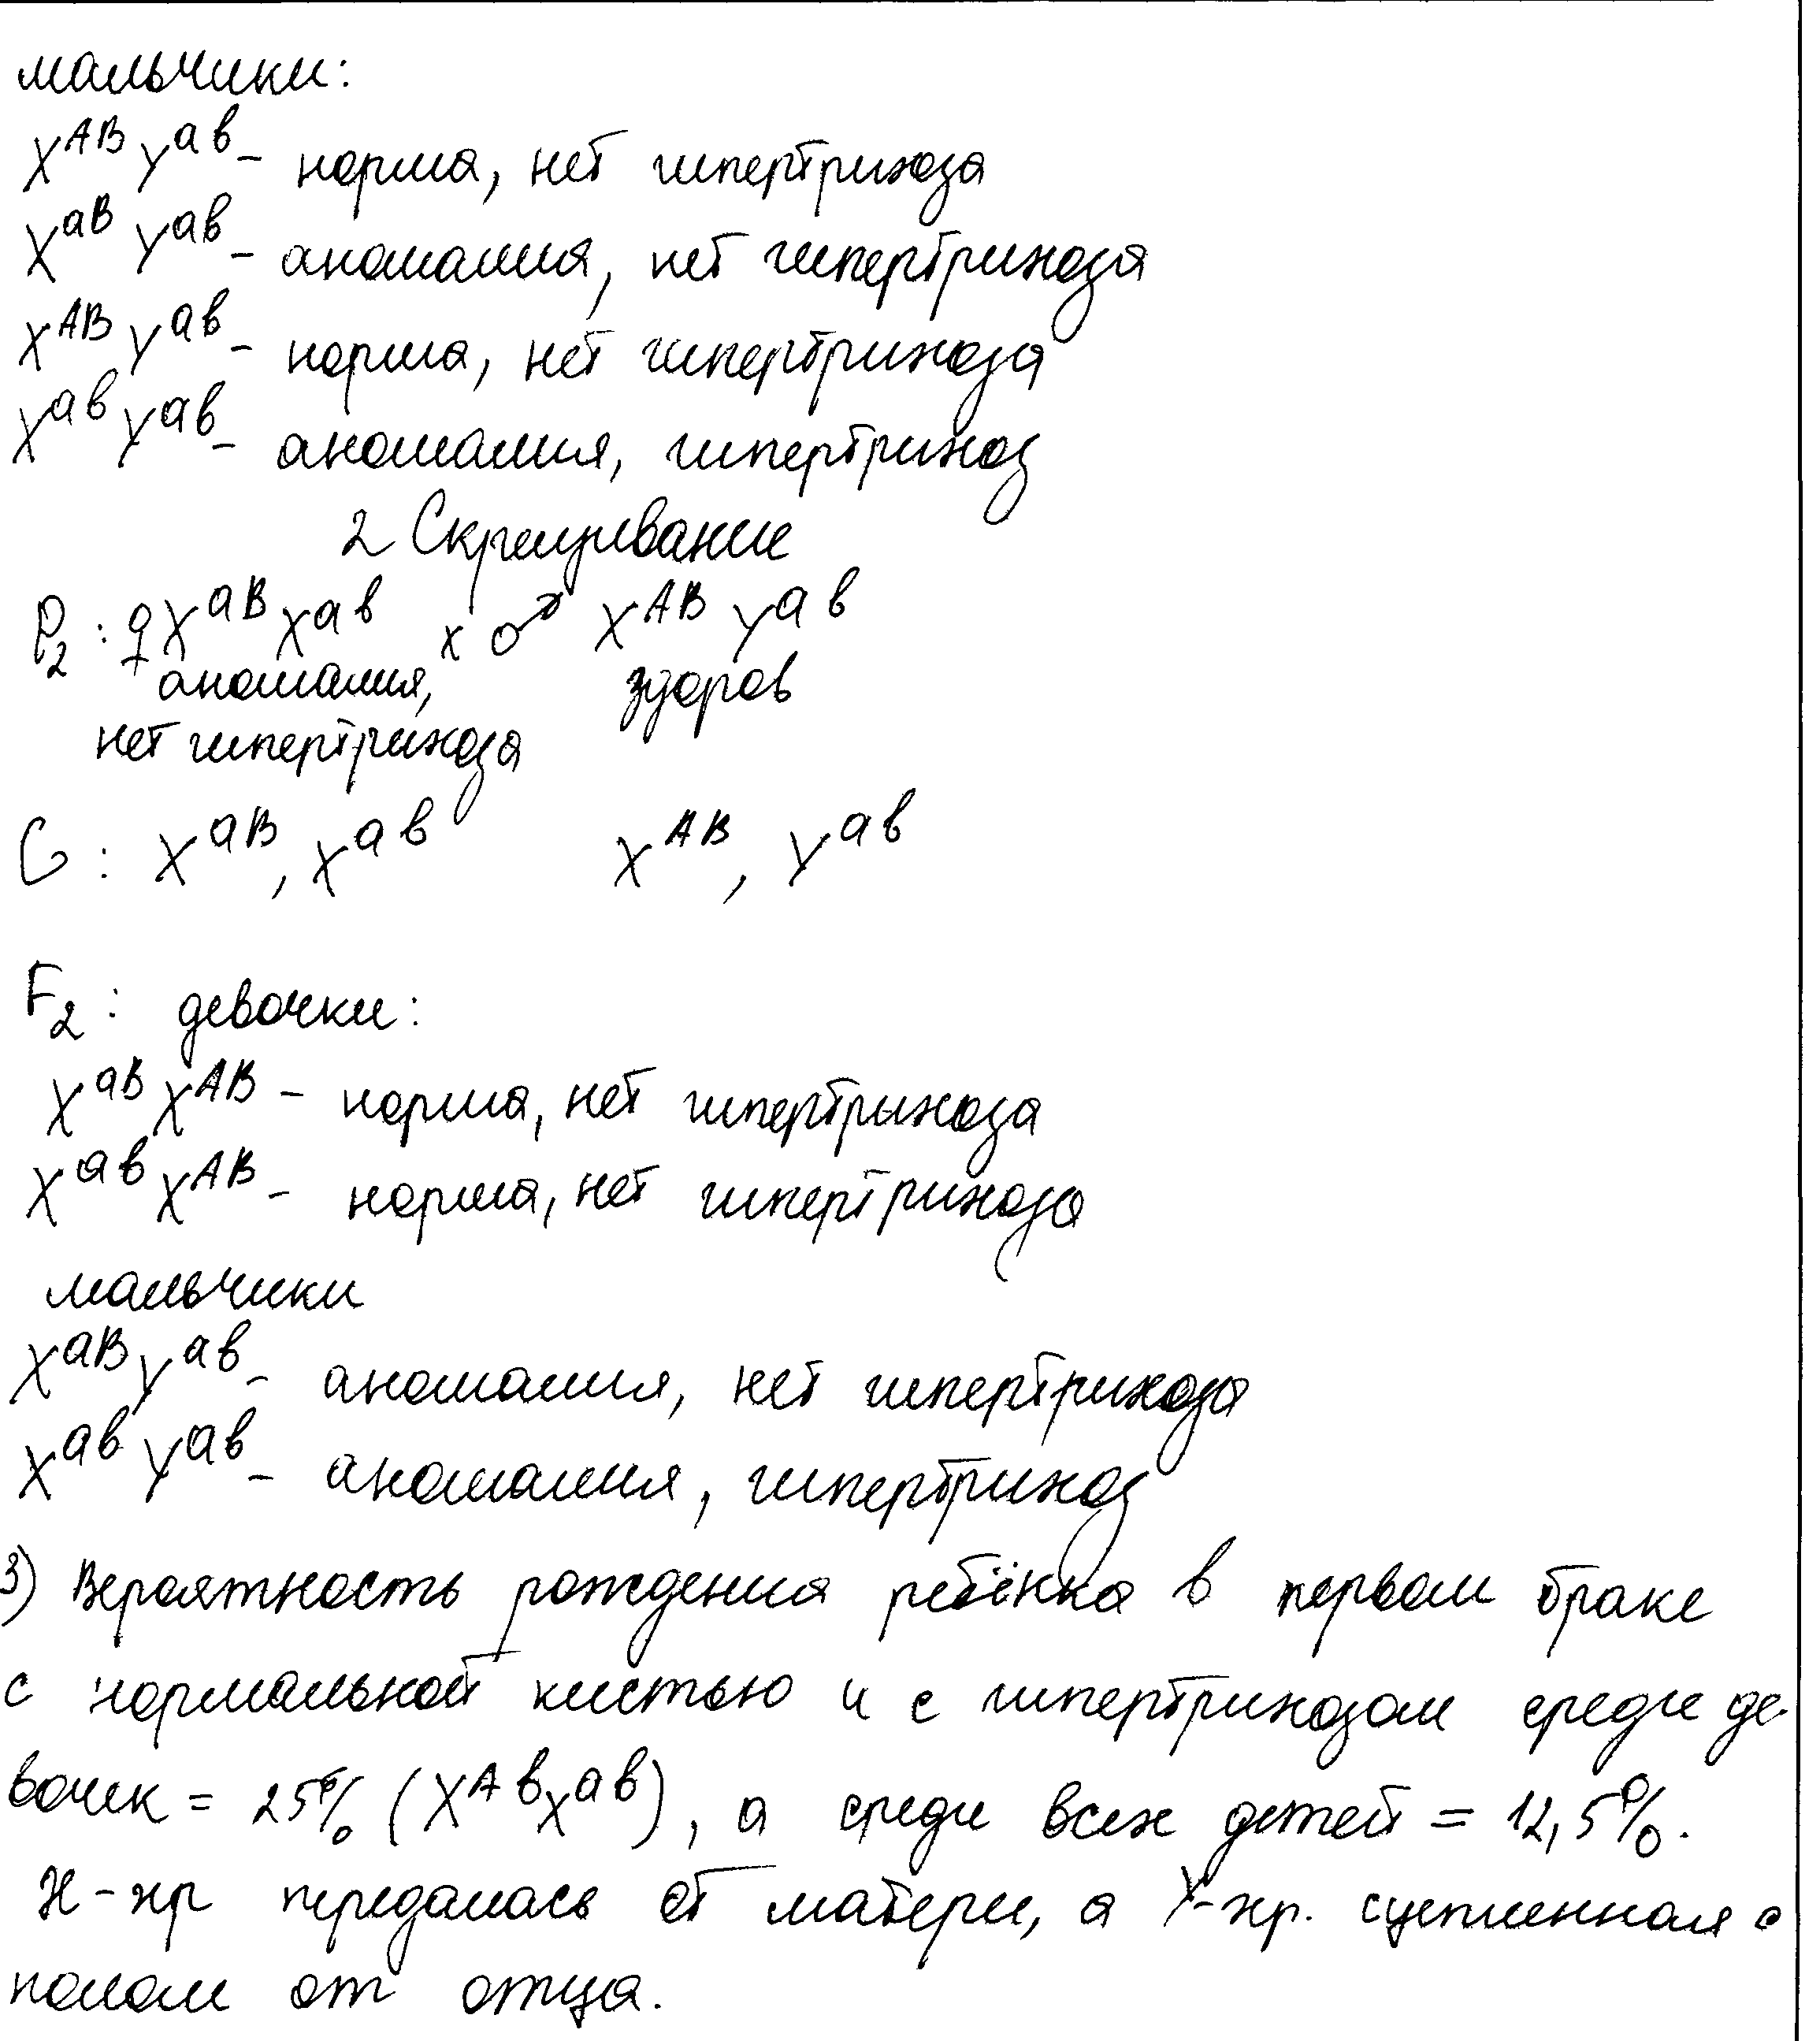 мальчики:
X^AB Y^ab - норма, нет гипертрихоза
X^aB Y^ab - аномалия, нет гипертрихоза
X^AB Y^ab - норма, нет гипертрихоза
X^ab Y^ab - аномалия, гипертрихоз
2 Скрещивание
P₂: ♀ X^aB X^ab x ♂ X^AB Y^ab
аномалия, здоров
нет гипертрихоза
G: X^aB, X^ab X^AB, Y^ab
F₂: девочки:
X^aB X^AB - норма, нет гипертрихоза
X^ab X^AB - норма, нет гипертрихоза
мальчики
X^aB Y^ab - аномалия, нет гипертрихоза
X^ab Y^ab - аномалия, гипертрихоз
3) Вероятность рождения ребёнка в первом браке
с нормальной кистью и с гипертрихозом среди де-
вочек = 25% (X^Ab X^ab), а среди всех детей = 12,5%.
X-хр передалась от матери, а Y-хр. сцепленная с
полом от отца.